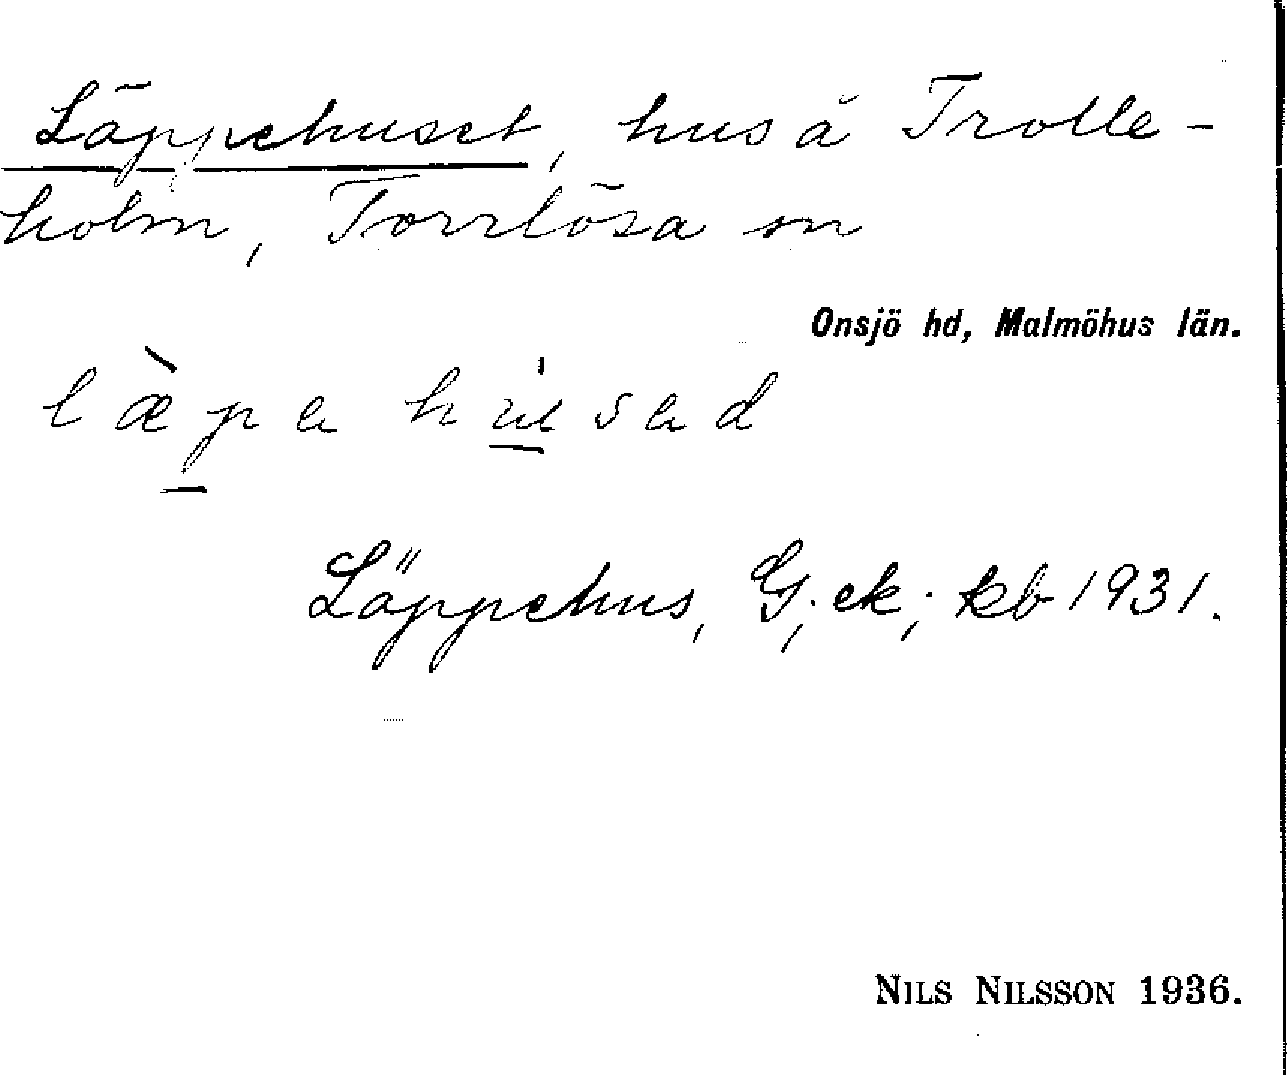 Läppehuset, hus å Trolle-
holm, Torrlösa sn
Onsjö hd, Malmöhus län.
læ̀pa húsad
Läppehus, G; ek; kb 1931.
NILS NILSSON 1936.